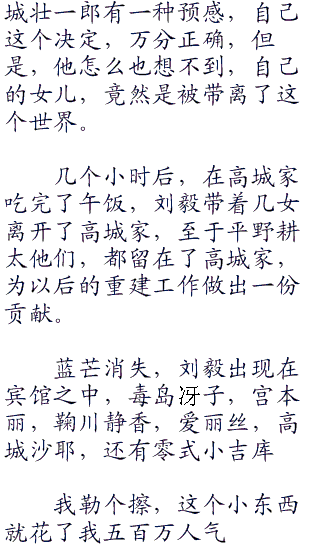 城壮一郎有一种预感，自己
这个决定，万分正确，但
是，他怎么也想不到，自己
的女儿，竟然是被带离了这
个世界。
几个小时后，在高城家
吃完了午饭，刘毅带着几女
离开了高城家，至于平野耕
太他们，都留在了高城家，
为以后的重建工作做出一份
贡献。
蓝芒消失，刘毅出现在
宾馆之中，毒岛冴子，宫本
丽，鞠川静香，爱丽丝，高
城沙耶，还有零式小吉库
我勒个擦，这个小东西
就花了我五百万人气